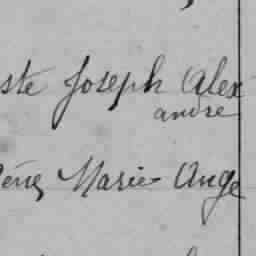 ste Joseph Alex
andre
Marie Ange